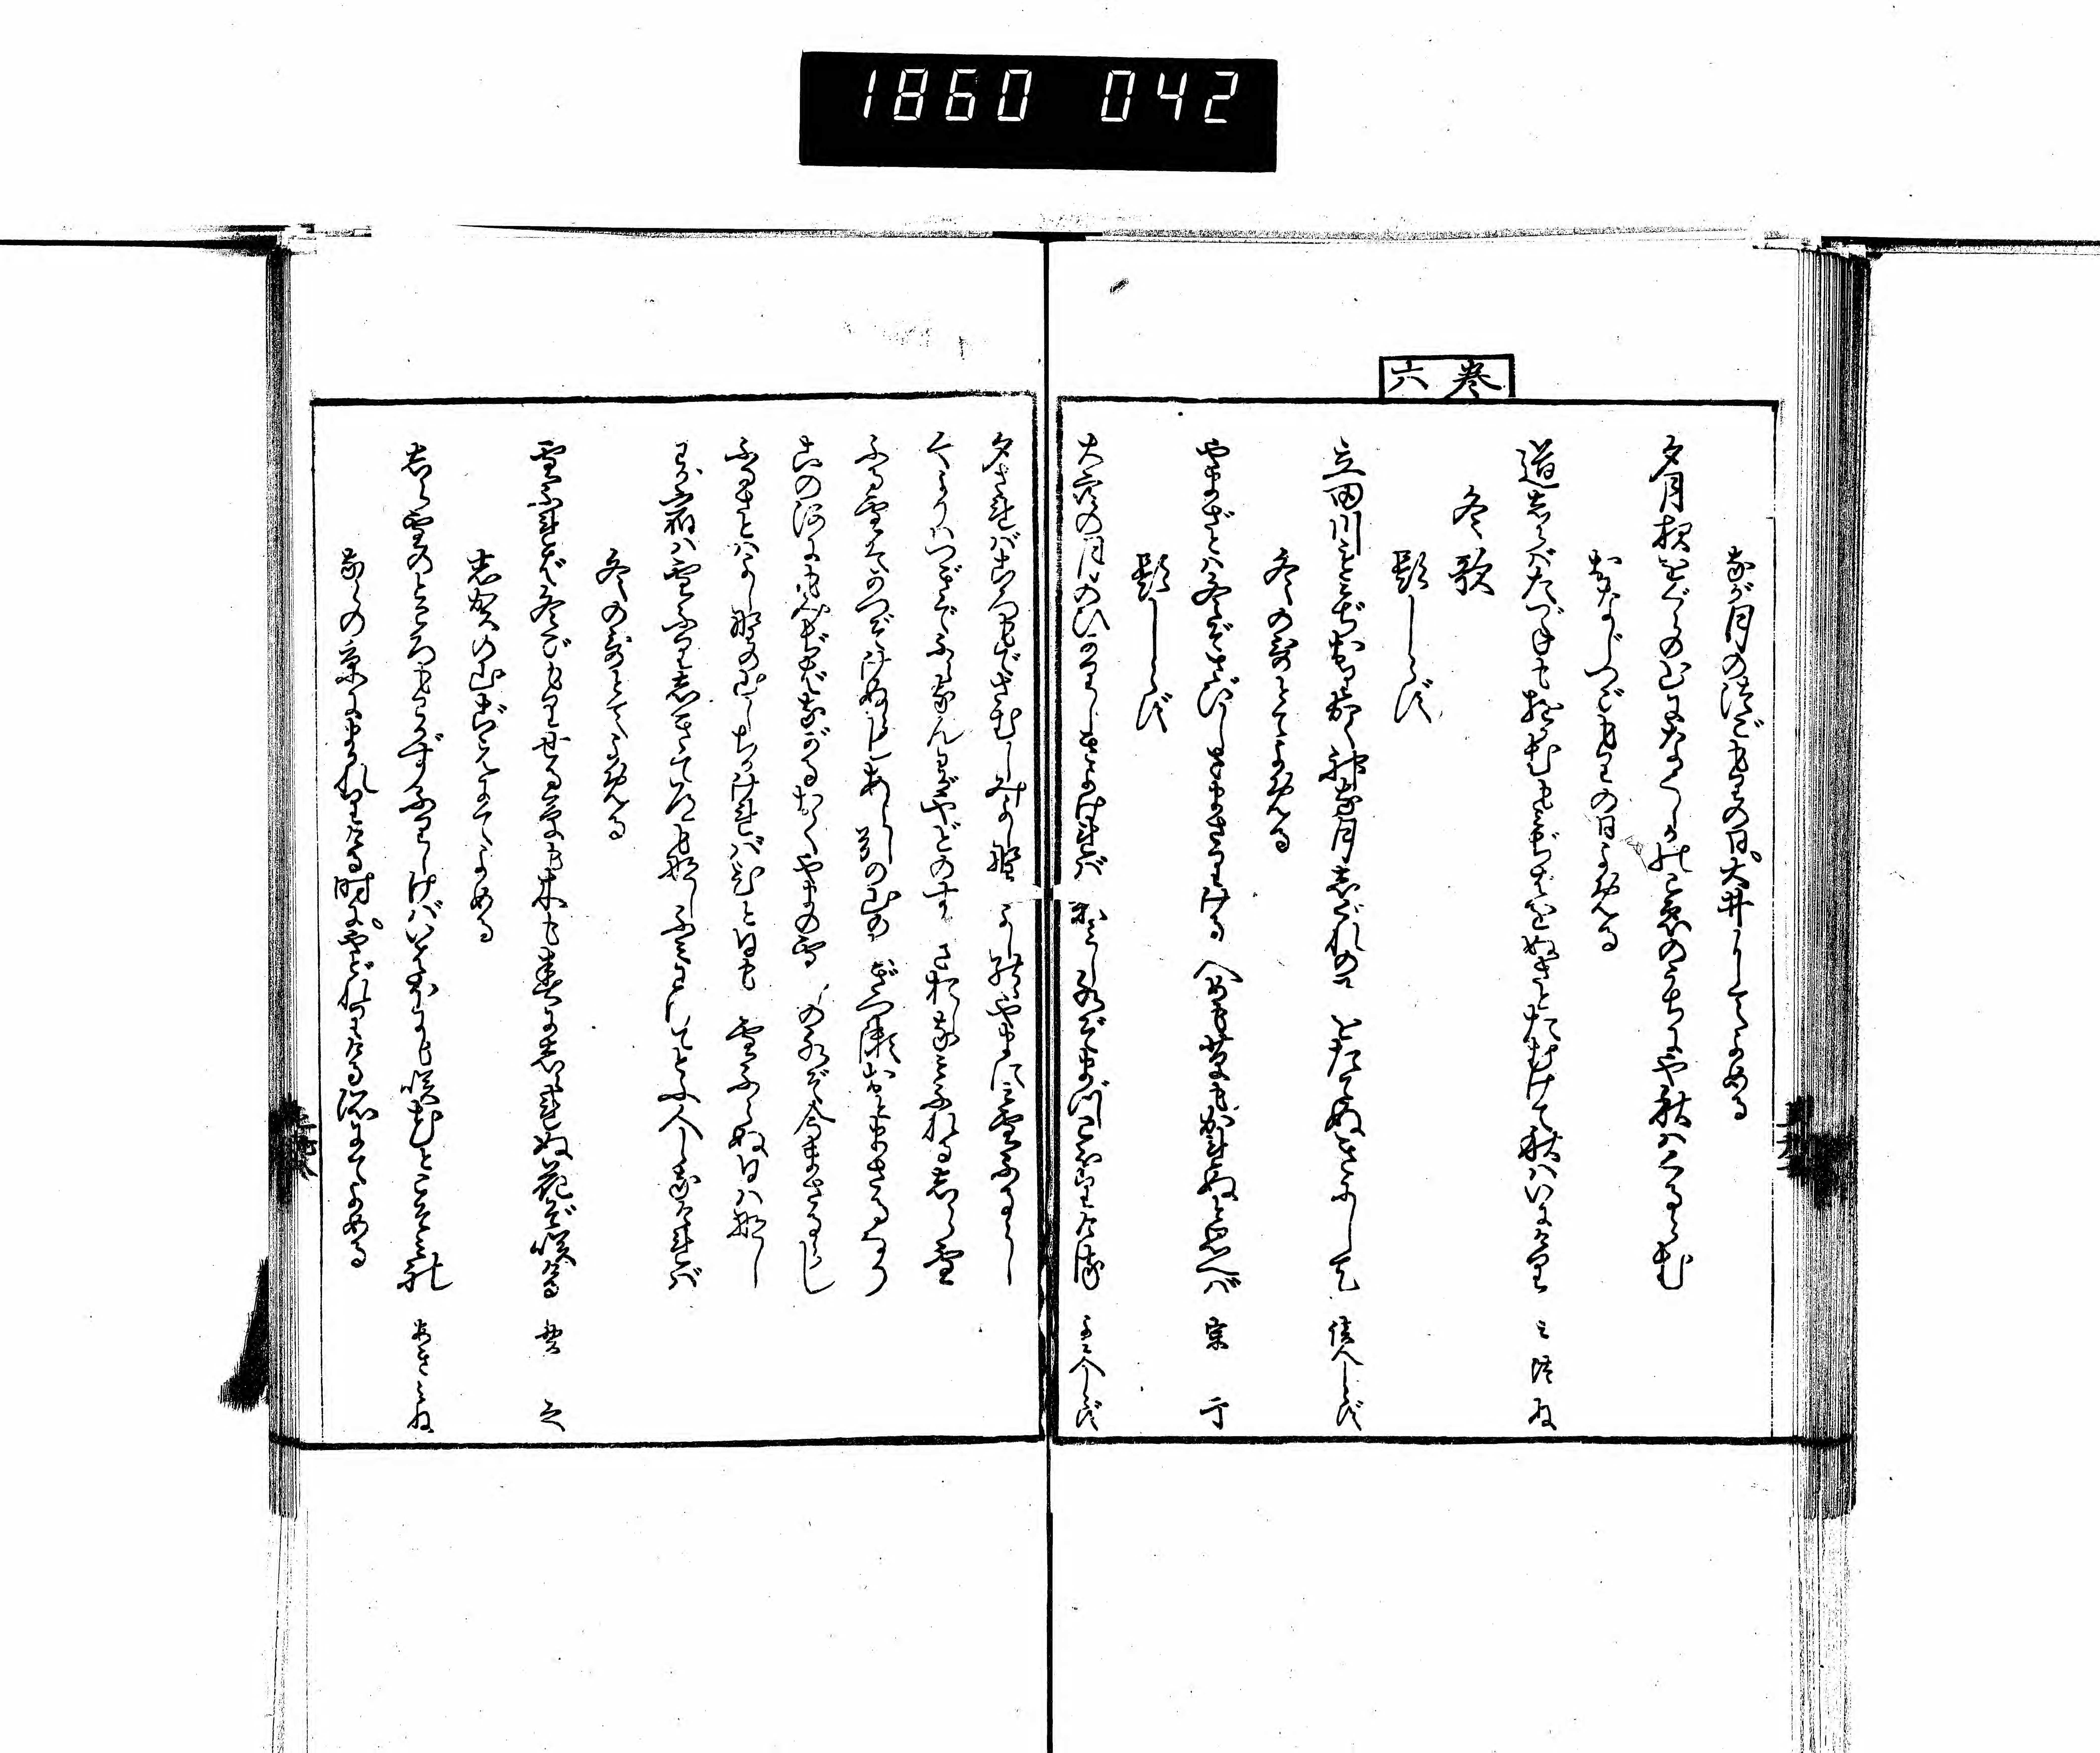 1860 042
巻六
なが月のつごもりの日。大井にてよめる
夕月夜をぐらの山になくしかのこゑのうちにや秋ハくるらむ
おなじつごもりの日よめる
道しらバたづねもゆかむもみぢばをぬさとたむけて秋ハいにけり みつね
冬歌
題しらず
立田川にしきおりかく神な月しぐれの雨をたてぬきにして 读人しらず
冬の哥とてよめる
やまざとハ冬ぞさびしさまさりける人めも草もかれぬと思へバ 宗于
題しらず
大空の月のひかりしきよけれバ影みし水ぞまづこほりける よみ人しらず
夕されバころもでさむしみよし野のよしのゝやまにみ雪ふるらし
今よりハつぎてふらなんわがやどのすゝきおしなみふれるしら雪
ふる雪ハかつぞけぬらしあし引の山のたぎつ瀬おとまさるなり
この河にもみぢばながるおくやまの雪げの水ぞ今まさるらし
ふるさとハよし野の山しちかけれバひと日もみ雪ふらぬ日ハなし
わが宿ハ雪ふりしきてみちもなしふみわけてとふ人しなけれバ
冬の哥とてよめる
雪ふれバ冬ごもりせる草も木も春にしられぬ花ぞ咲ける 貫之
志賀の山ごえにてよめる
しら雪のところもわかずふりしけバいはほにも咲花とこそみれ あきみね
ならの京にまかれりける時に。やどれりける所にてよめる